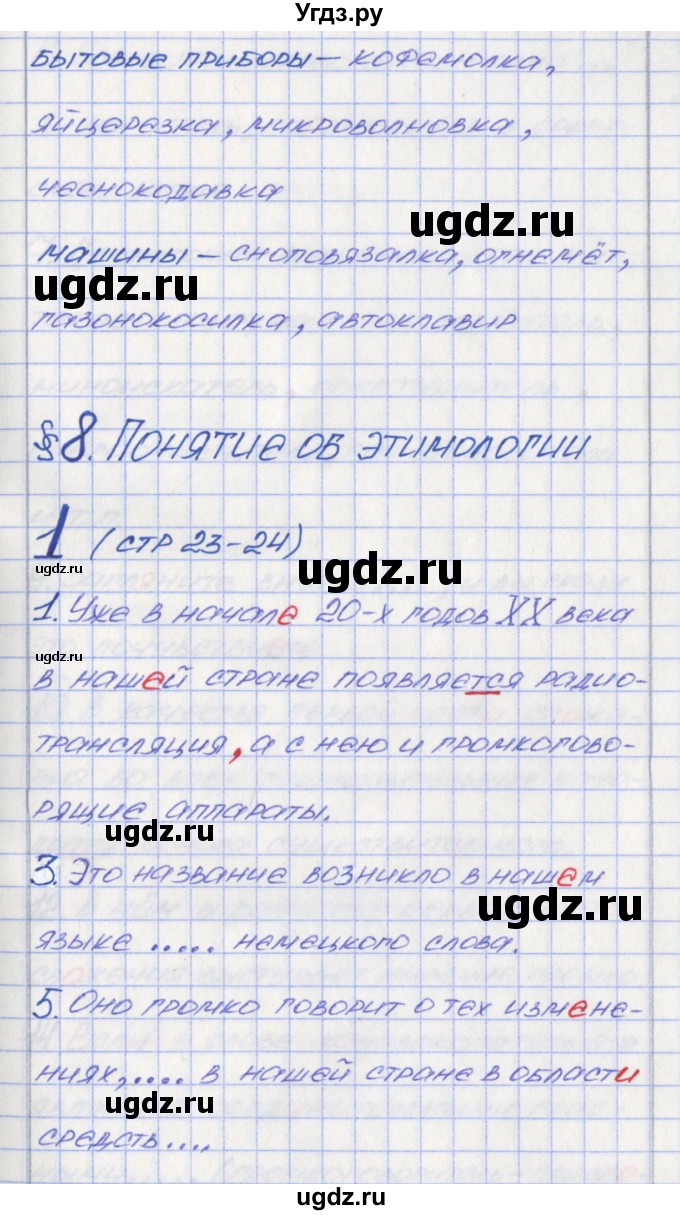 Угдз.ру
бытовые приборы – кофемолка,
яйцерезка, микроволновка,
чеснокодавка
ugdz.ru
машины – сноповязалка, огнемёт,
ugdz.ru
газонокосилка, автоклавир
§8. Понятие об этимологии
1 (стр 23-24)
ugdz.ru
ugdz.ru
1. Уже в начале 20-х годов XX века
ugdz.ru
в нашей стране появляется радио-
трансляция, а с нею и громкогово-
рящие аппараты.
ugdz.ru
3. Это название возникло в нашем
ugdz.ru
языке ..... немецкого слова.
5. Оно громко говорит о тех измене-
ниях, .... в нашей стране в области
ugdz.ru
средств ....
ugdz.ru